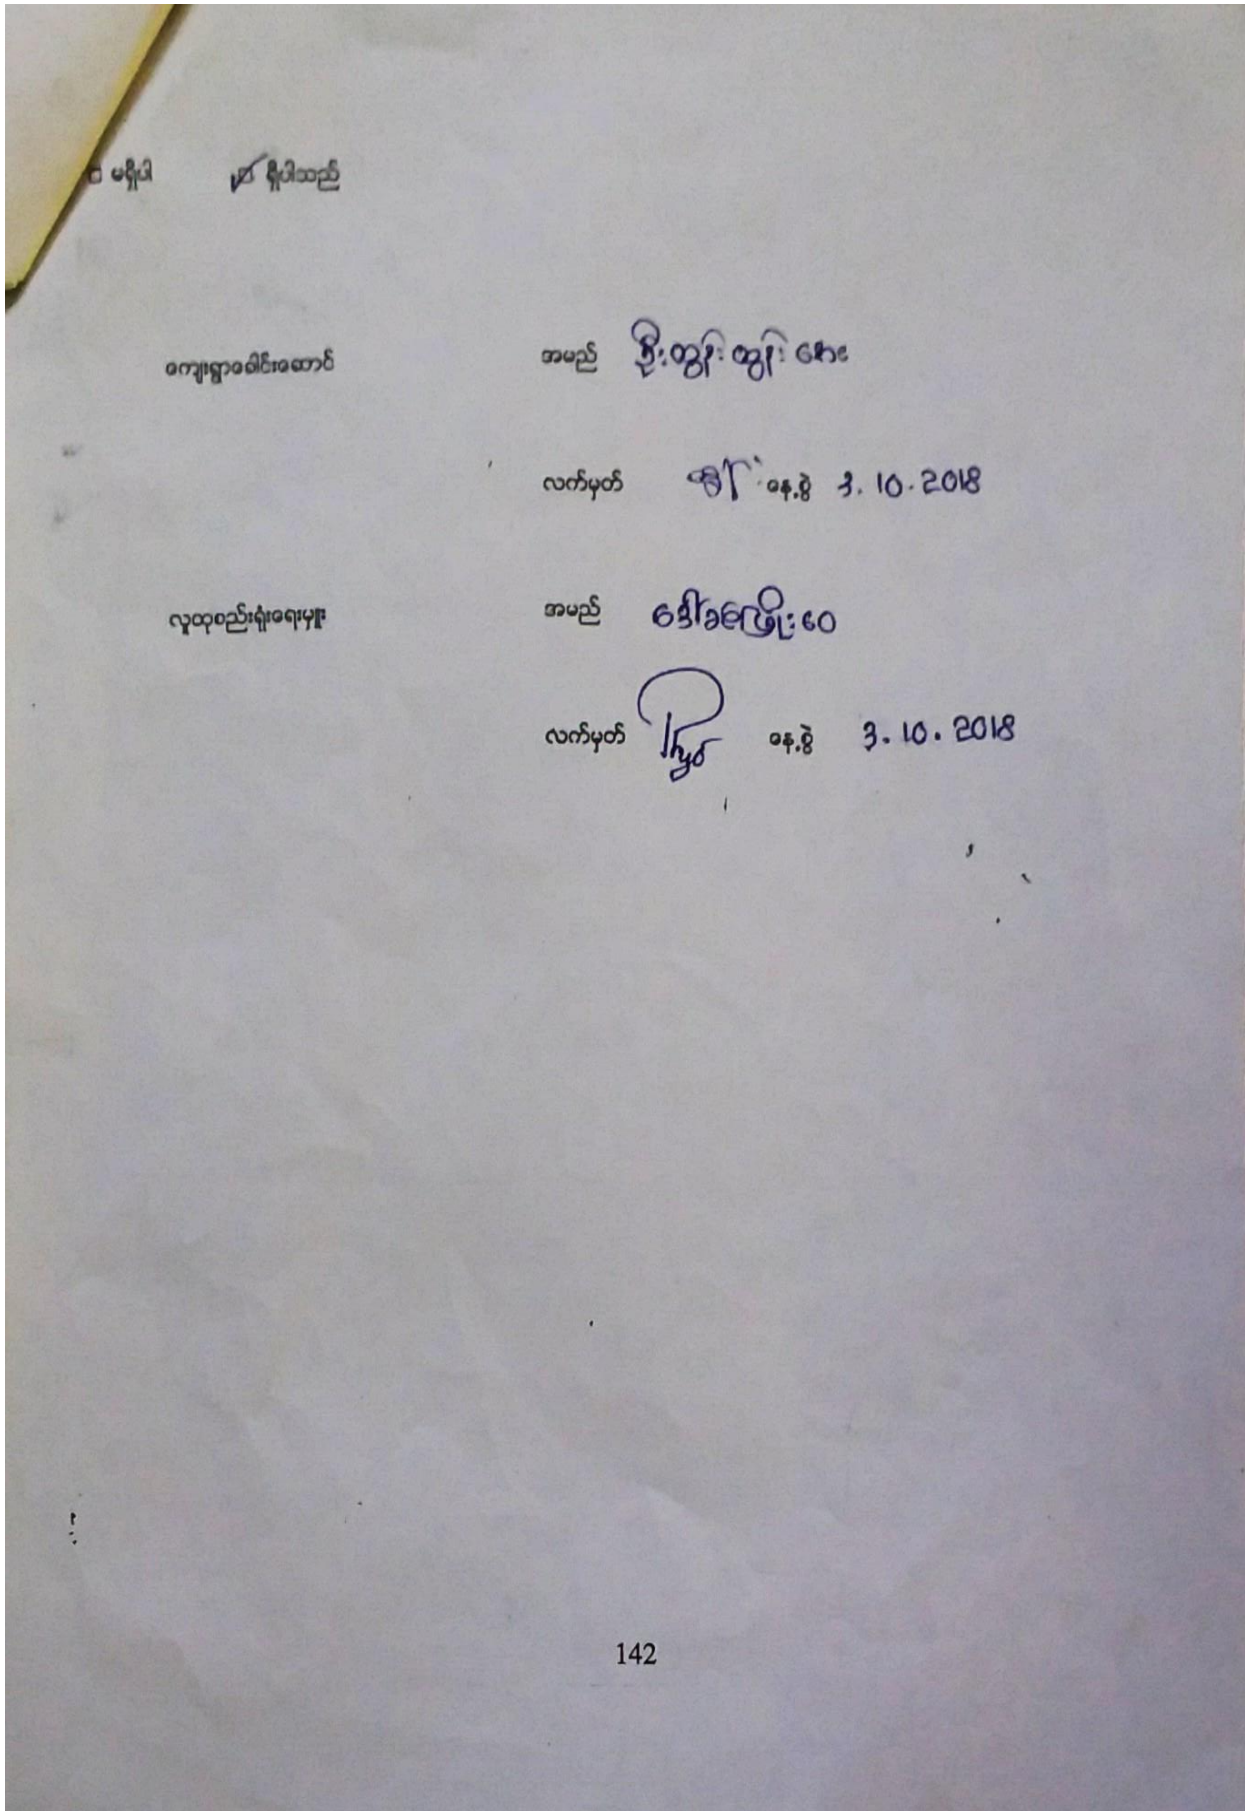 □ မရှိပါ ☑ ရှိပါသည်
ကျေးရွာခေါင်းဆောင် အမည် ဦးထွန်းထွန်းဝေး
လက်မှတ် ထွန်း နေ့စွဲ 3.10.2018
လူထုစည်းရုံးရေးမှူး အမည် ဒေါ်ခင်ဖြိုးဝေ
လက်မှတ် နေ့စွဲ 3.10.2018
142